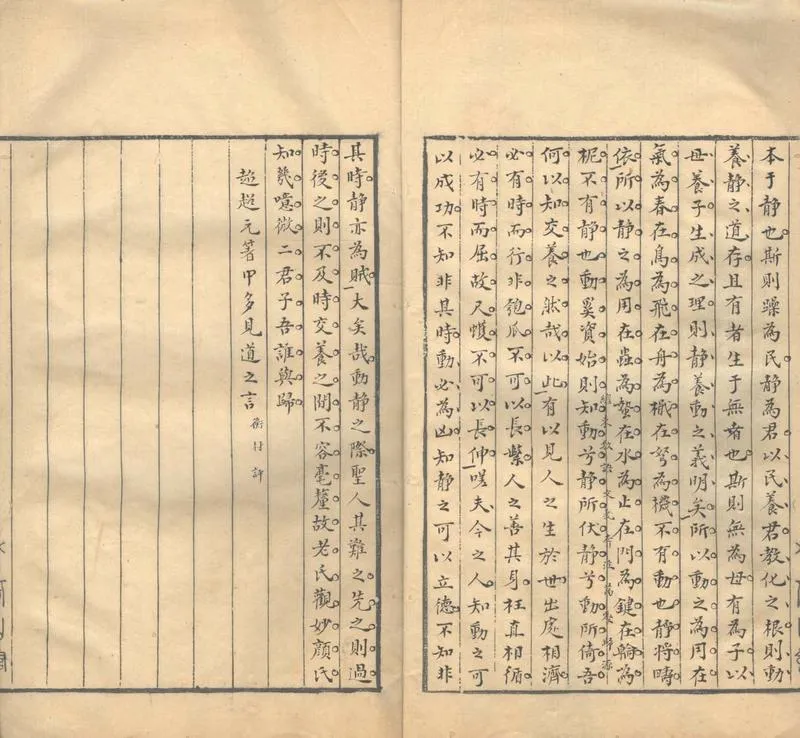 本于静也斯則躁為民静為君以民養君教化之根則動
養静之道存且有者生于無者也斯則無為母有為子以
母養子生成之理則静養動之義明矣所以動之為用在
氣為春在鳥為飛在舟為檝在弩為機不有動也静將疇
依所以静之為用在蟲為蟄在水為止在門為鍵在輪為
柅不有静也動奚資始則知動兮静所伏静兮動所倚吾
何以知交養之然哉以此有以見人之生於世出處相濟
必有時而行非匏瓜不可以長繫人之善其身枉直相循
必有時而屈故尺蠖不可以長伸嗟夫今之人知動之可
以成功不知非其時動必為凶知静之可以立德不知非
其時静亦為賊大矣哉動静之際聖人其難之先之則過
時後之則不及時交養之間不容毫釐故老氏觀妙顔氏
知幾噫微二君子吾誰與歸
超超元箸中多見道之言
衡村評